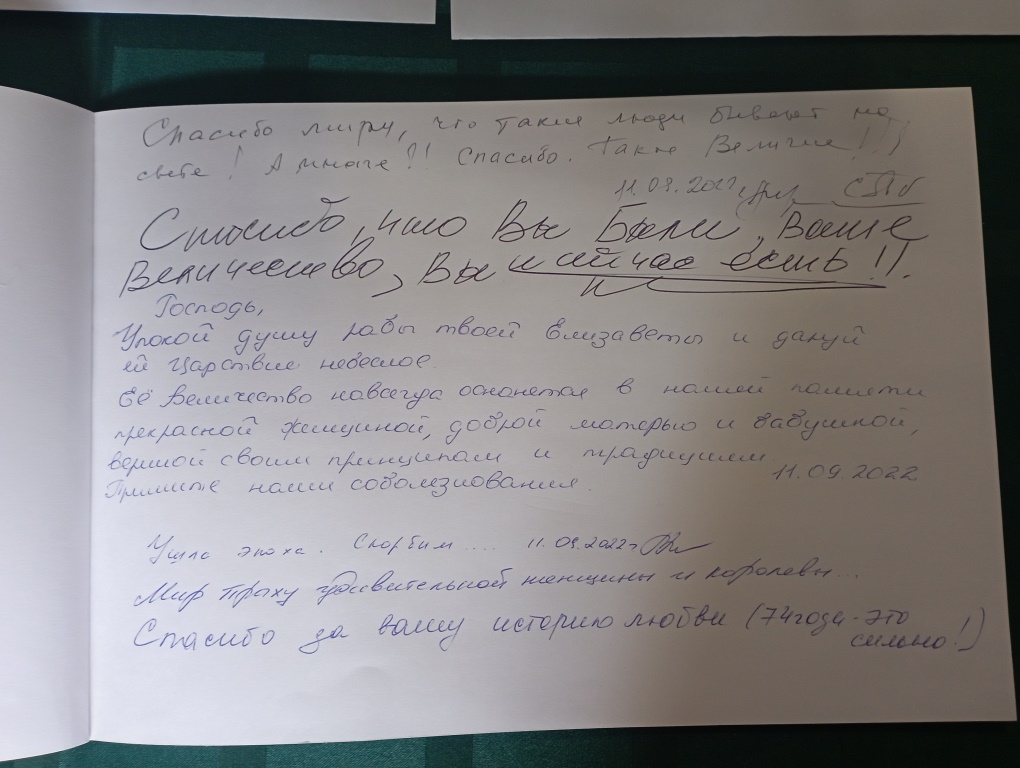 Спасибо миру, что такие люди бывают на
свете! А иначе?! Спасибо. Такое Величие!!)
11.09.2022г СПб
Спасибо, что Вы Были, Ваше
Величество, Вы и сейчас есть!!.
Господь,
Упокой душу рабы твоей Елизаветы и даруй
ей Царствие небесное.
Её Величество навсегда останется в нашей памяти
прекрасной женщиной, доброй матерью и бабушкой,
верной своим принципам и традициям
Примите наши соболезнования. 11.09.2022
Ушла эпоха. Скорбим.... 11.09.2022г
Мир праху удивительной женщины и королевы...
Спасибо за вашу историю любви (74 года - это
сильно!)